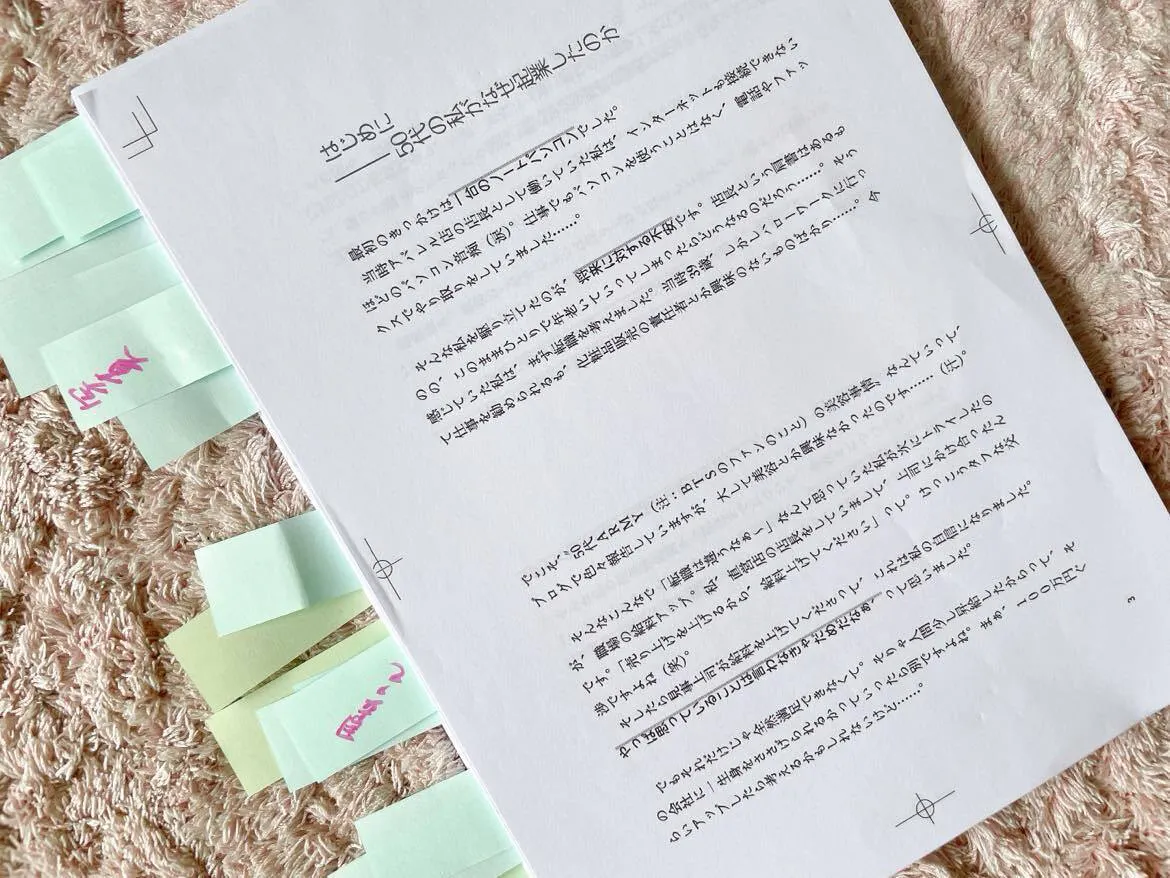 はじめに
――50代の私がなぜ起業したのか
最初のきっかけは一台のノートパソコンでした。
当時アパレル店の店長として働いていた私は、インターネットも接続できない
ほどのパソコン音痴(涙)。仕事でもパソコンを使うことはなく、電話やファッ
クスでやり取りをしていました……。
そんな私を駆り立てたのが、将来に対する不安です。店長という肩書はあるも
のの、このままひとりで年老いていってしまったらどうなるのだろう……。そう
感じていた私は、まず転職を考えました。当時39歳、しかしハローワークに行っ
て仕事を勧められるも、化粧品販売の責任者とか興味のないものばかり……。今
でこそ、“50代ARMY(注:BTSのファンのこと)の美容事情”なんていって、
ブログで色々報告していますが、大して美容とか興味なかったのです……(汗)。
そんなこんなで「転職は違うなぁー」なんて思っていた私が次にトライしたの
が、職場の給料アップ。私、直営店の店長をしていまして、上司にかけ合ったん
です。「売り上げを上げるから、給料上げてください」って。けっこうタフな交
渉ですよね(笑)。
そしたら見事上司が給料を上げてくださって、これは私の自信になりました。
やっぱ思っていることは言わなきゃだめだなぁって思いました。
でもそれだけじゃ全然満足できなくて。そりゃ人間少し昇給したからって、そ
の会社に一生身をささげられるかっていったら別ですよね。まぁ、100万円く
らいアップしたら考えるかもしれないけど……。
3